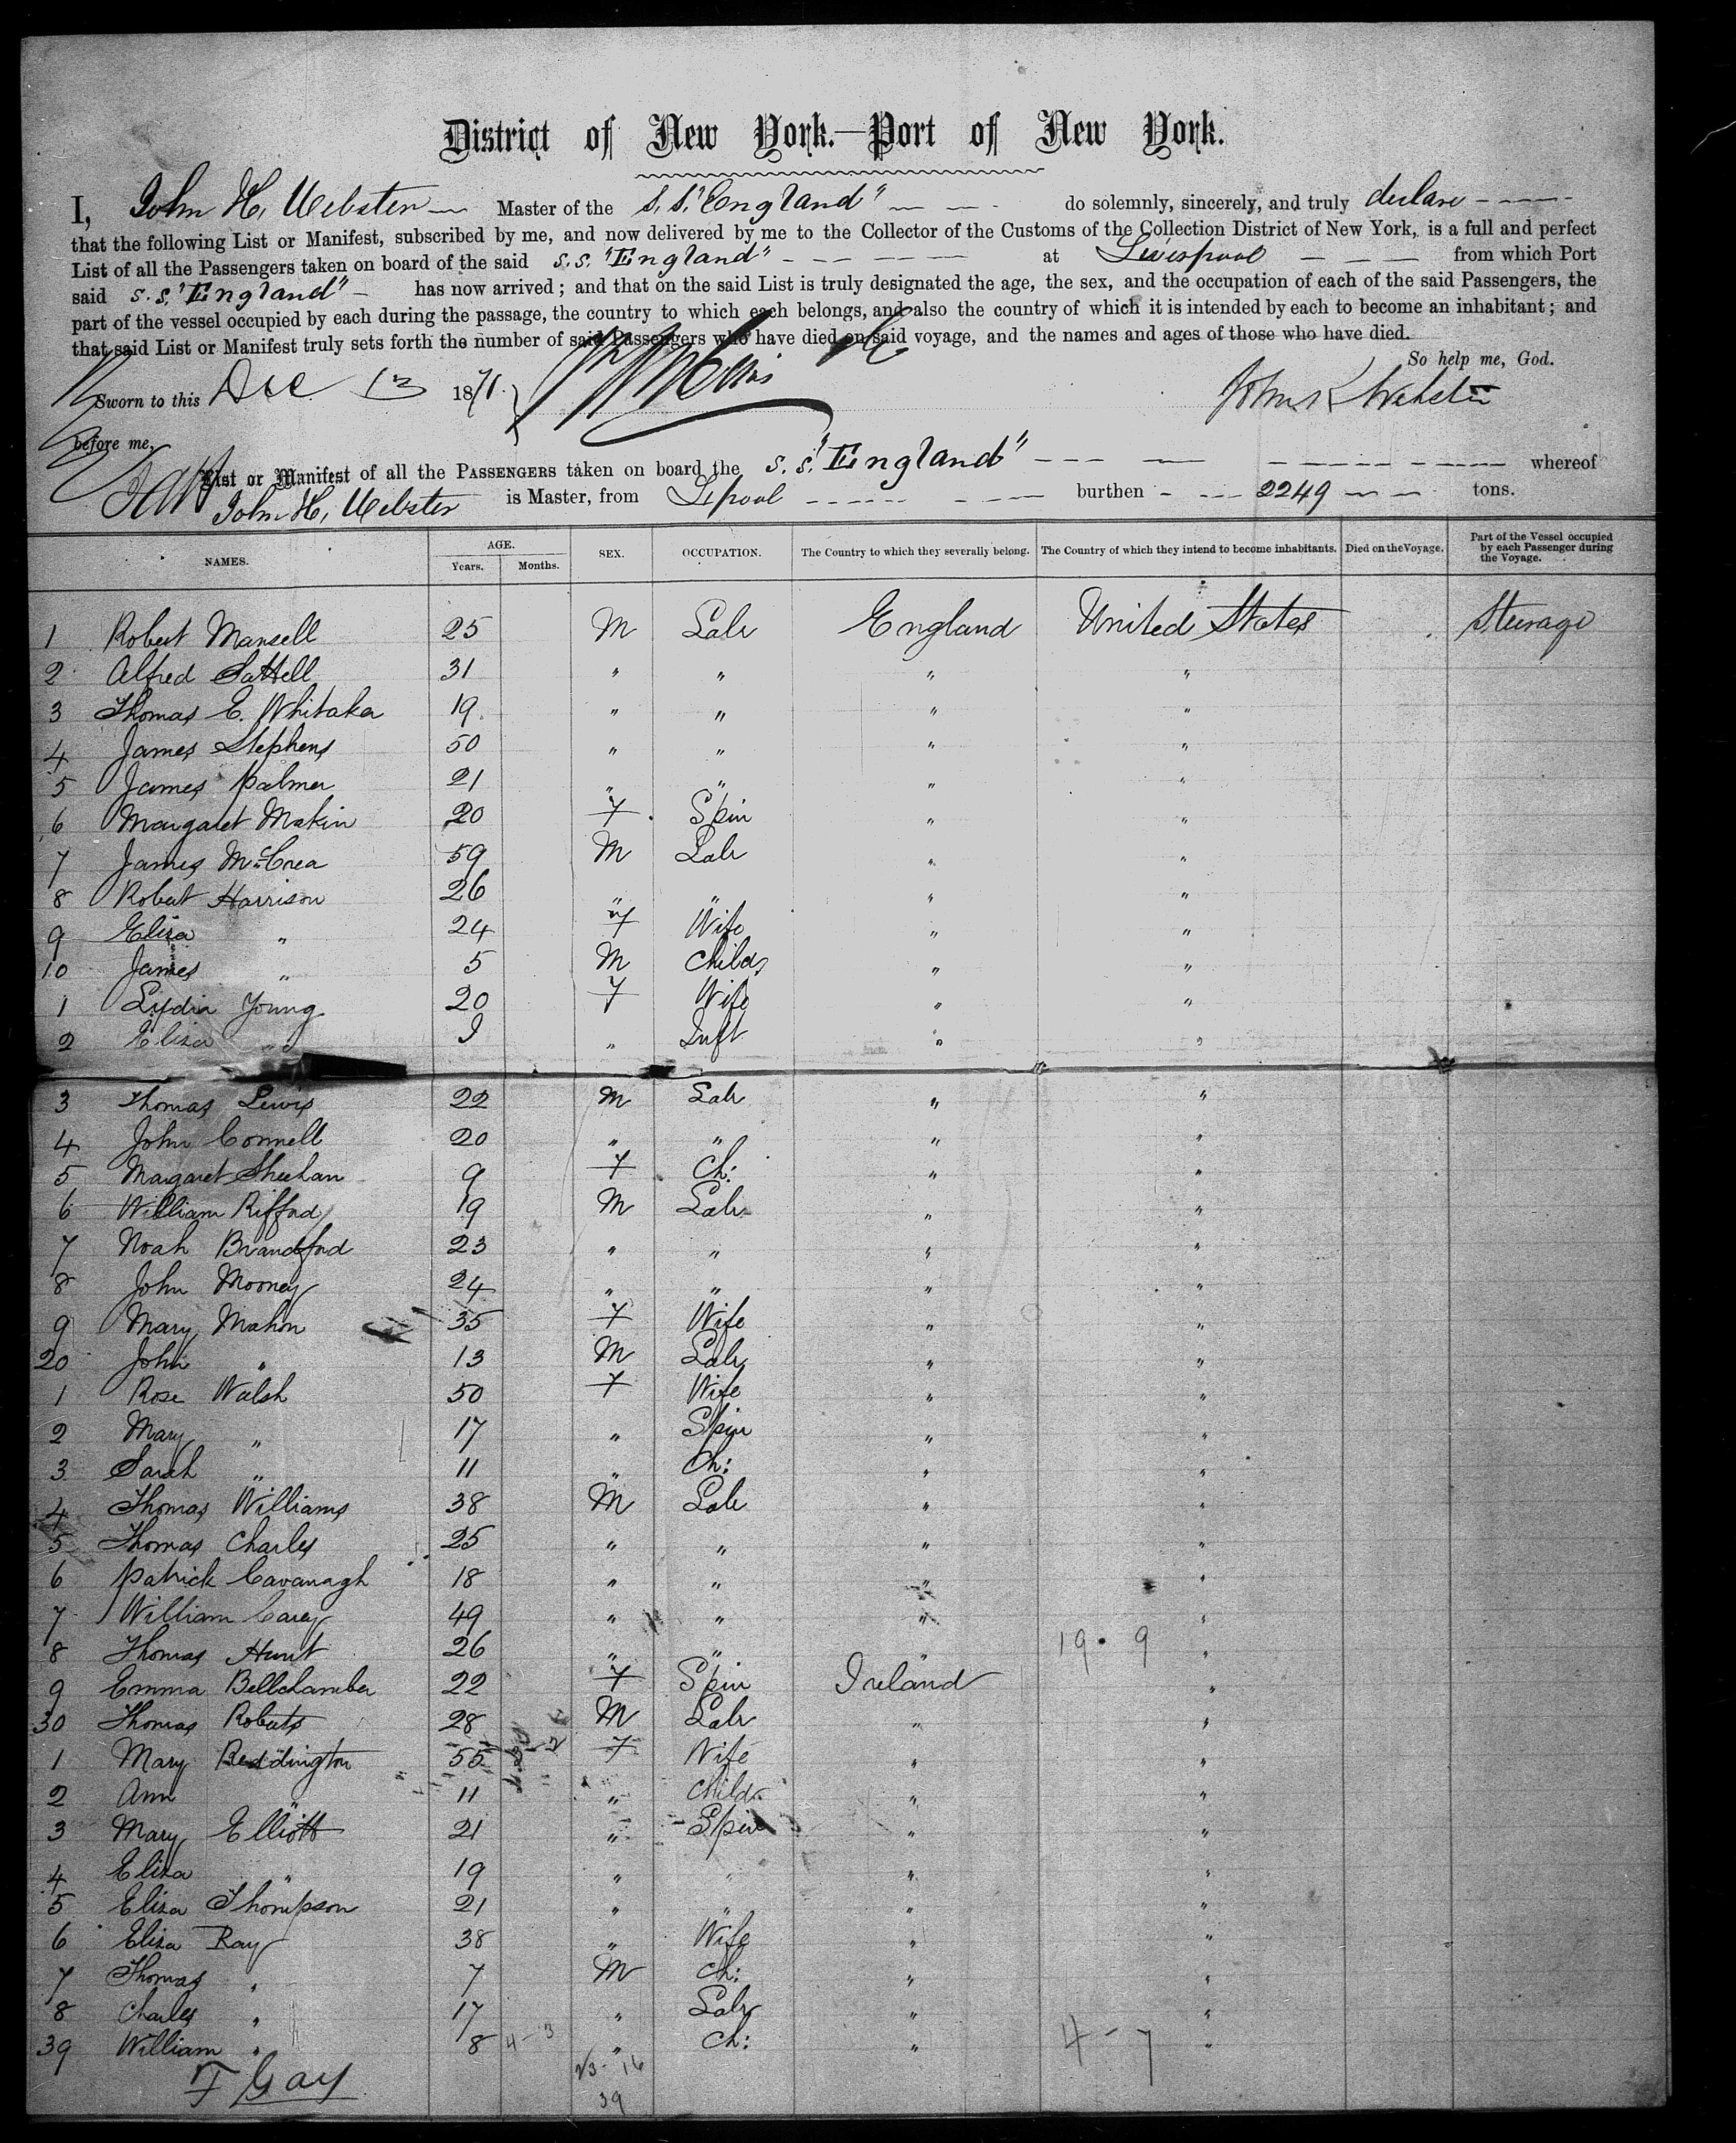 District of New York.—Port of New York.
I, John H, Webster Master of the S, S, "England" do solemnly, sincerely, and truly declare
that the following List or Manifest, subscribed by me, and now delivered by me to the Collector of the Customs of the Collection District of New York, is a full and perfect
List of all the Passengers taken on board of the said S. S. "England" at Liverpool from which Port
said S. S, "England" has now arrived; and that on the said List is truly designated the age, the sex, and the occupation of each of the said Passengers, the
part of the vessel occupied by each during the passage, the country to which each belongs, and also the country of which it is intended by each to become an inhabitant; and
that said List or Manifest truly sets forth the number of said Passengers who have died on said voyage, and the names and ages of those who have died.
So help me, God.
Sworn to this Dec 13 1871. John H Webster
before me,
List or Manifest of all the PASSENGERS taken on board the S. S. "England" whereof
John H, Webster is Master, from Lpool burthen 2249 tons.
NAMES. AGE. Years. Months. SEX. OCCUPATION. The Country to which they severally belong. The Country of which they intend to become inhabitants. Died on the Voyage. Part of the Vessel occupied by each Passenger during the Voyage.
1 Robert Mansell 25 M Labr England United States Steerage
2 Alfred Sattell 31 " " " "
3 Thomas E. Whitaker 19 " " " "
4 James Stephens 50 " " " "
5 James Palmer 21 " " " "
6 Margaret Makin 20 F Spin " "
7 James McCrea 59 M Labr " "
8 Robert Harrison 26 " " " "
9 Eliza " 24 F Wife " "
10 James " 5 M Child " "
1 Lydia Young 20 F Wife " "
2 Eliza " " Inft " "
3 Thomas Lewis 22 M Labr " "
4 John Connell 20 " " " "
5 Margaret Sheehan 9 F Ch: " "
6 William Rifford 19 M Labr " "
7 Noah Brandford 23 " " " "
8 John Mooney 24 " " " "
9 Mary Mahon 35 F Wife " "
20 John " 13 M Labr " "
1 Rose Walsh 50 F Wife " "
2 Mary " 17 " Spin " "
3 Sarah " 11 " Ch: " "
4 Thomas Williams 38 M Labr " "
5 Thomas Charles 25 " " " "
6 Patrick Cavanagh 18 " " " "
7 William Carey 49 " " " "
8 Thomas Hunt 26 " " " 19 . 9 "
9 Emma Bellchamber 22 F Spin Ireland "
30 Thomas Roberts 28 M Labr " "
1 Mary Reddington 55 F Wife " "
2 Ann " 11 " Child " "
3 Mary Elliott 21 " Spin " "
4 Eliza " 19 " " " "
5 Eliza Thompson 21 " " " "
6 Eliza Ray 38 " Wife " "
7 Thomas " 7 M Ch: " "
8 Charles " 17 " Labr " "
39 William " 8 4 - 3 " Ch: " 4 - 7 "
F Gay 23 - 16
39